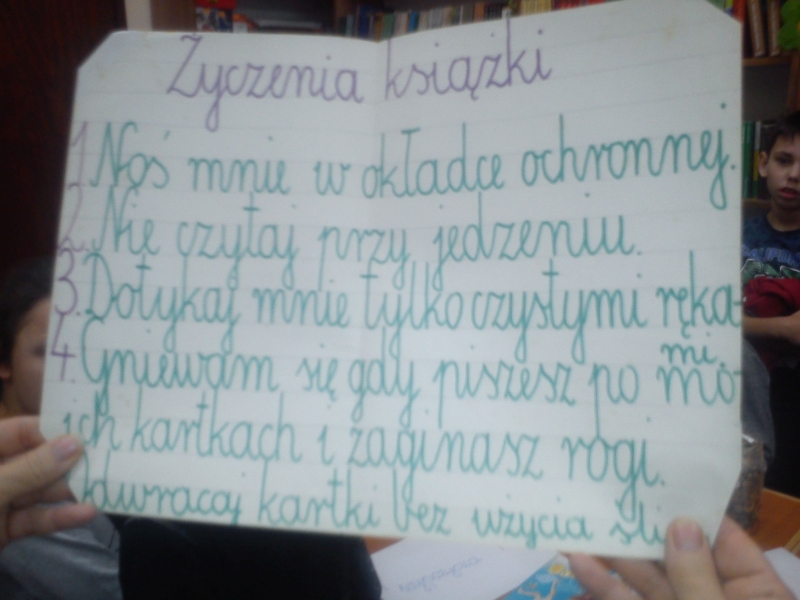 Życzenia książki
1. Noś mnie w okładce ochronnej.
2. Nie czytaj przy jedzeniu.
3. Dotykaj mnie tylko czystymi ręka-
mi.
4. Gniewam się gdy piszesz po mo-
ich kartkach i zaginasz rogi.
Odwracaj kartki bez użycia